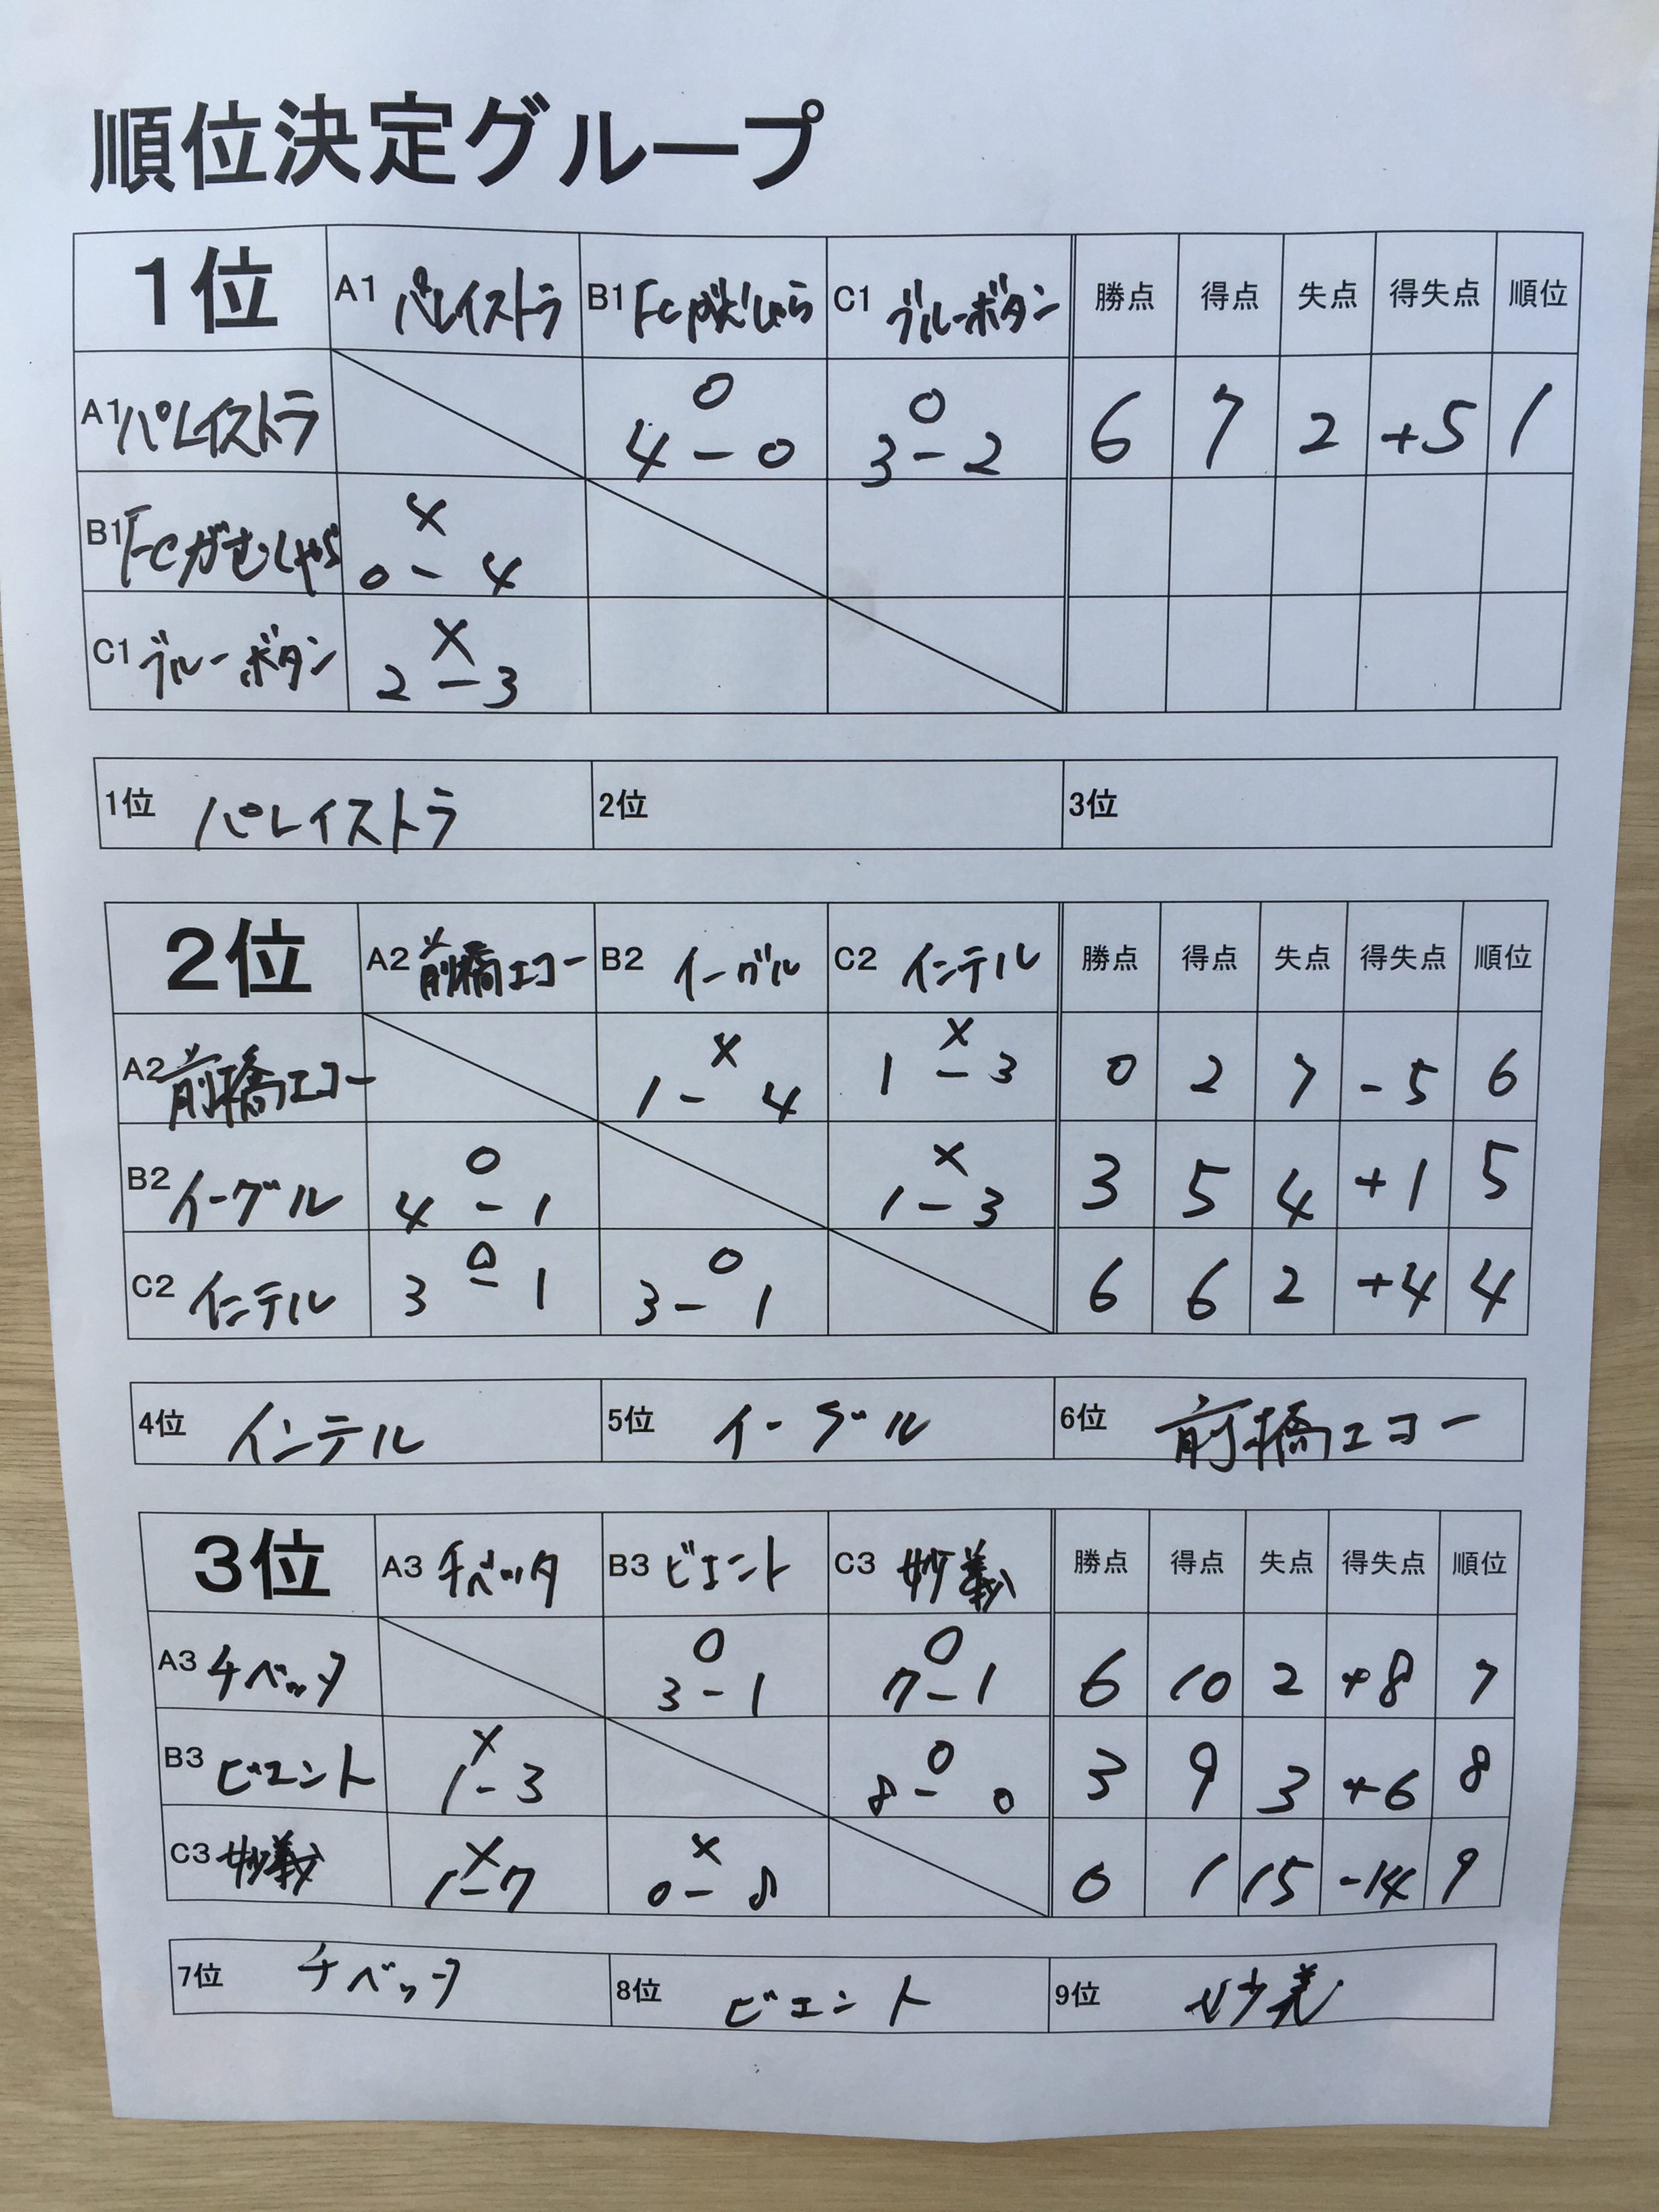 順位決定グループ
1位 A1 パレイストラ B1 FCがむしゃら C1 ブルーボタン 勝点 得点 失点 得失点 順位
A1 パレイストラ ○ 4-0 ○ 3-2 6 7 2 +5 1
B1 FCがむしゃら × 0-4
C1 ブルーボタン × 2-3
1位 パレイストラ 2位 3位
2位 A2 前橋エコー B2 イーグル C2 インテル 勝点 得点 失点 得失点 順位
A2 前橋エコー × 1-4 × 1-3 0 2 7 -5 6
B2 イーグル ○ 4-1 × 1-3 3 5 4 +1 5
C2 インテル ○ 3-1 ○ 3-1 6 6 2 +4 4
4位 インテル 5位 イーグル 6位 前橋エコー
3位 A3 チベッタ B3 ビエント C3 妙義 勝点 得点 失点 得失点 順位
A3 チベッタ ○ 3-1 ○ 7-1 6 10 2 +8 7
B3 ビエント × 1-3 ○ 8-0 3 9 3 +6 8
C3 妙義 × 1-7 × 0-8 0 1 15 -14 9
7位 チベッタ 8位 ビエント 9位 妙義